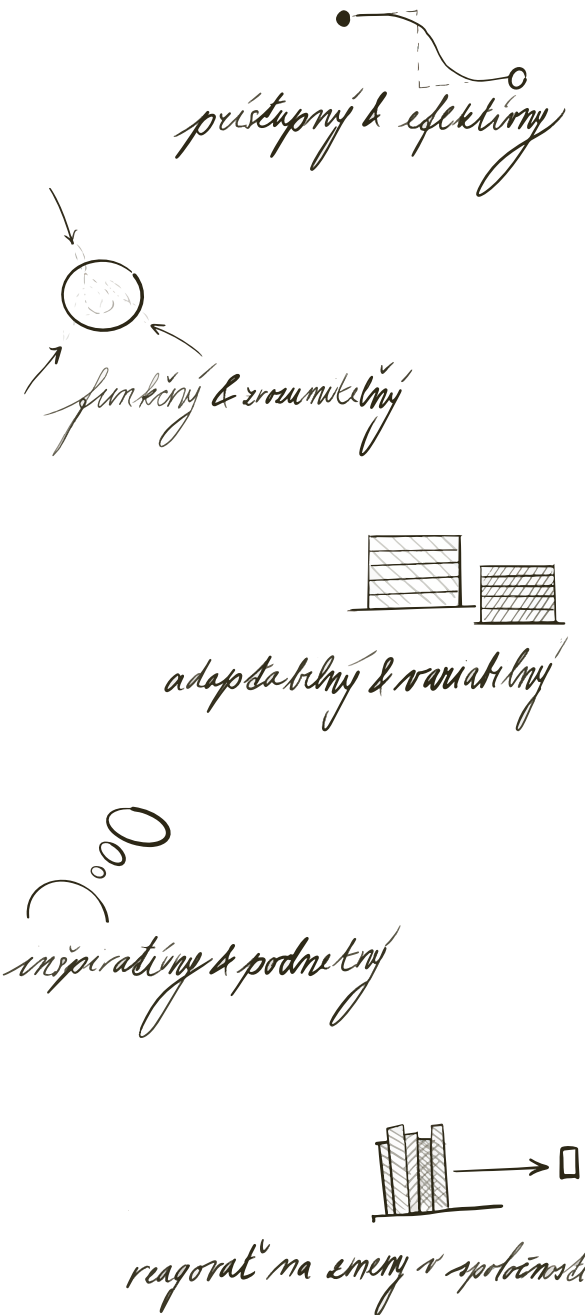 prístupný & efektívny
funkčný & zrozumiteľný
adaptabilný & variabilný
inšpiratívny & podnetný
reagovať na zmeny v spoločnosti